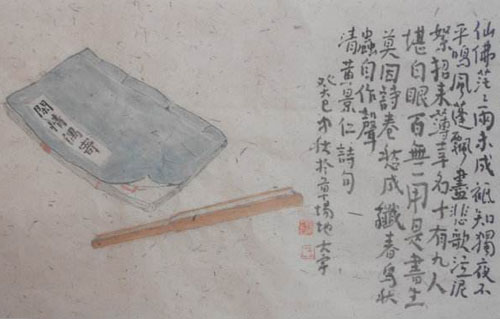 仙佛茫々兩未成祇知獨夜不
平鳴風蓬飄盡悲歌泣泥
絮招來薄幸名十有九人
堪白眼百無一用是書生
莫因詩卷愁成纖春鳥秋
蟲自作聲
清黄景仁詩句
癸巳秋於
閑情偶寄